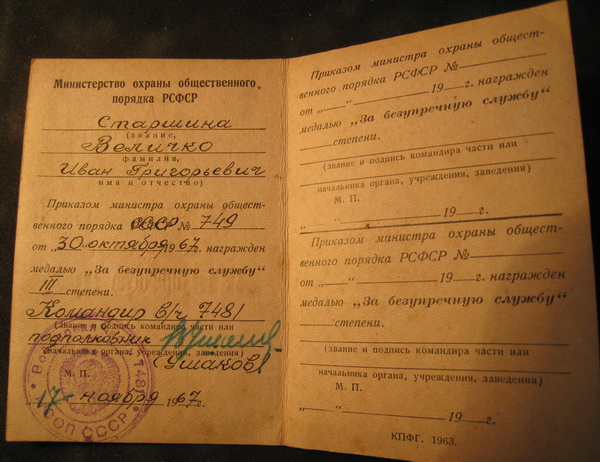 Министерство охраны общественного
порядка РСФСР
Старшина
(звание,
Величко
фамилия,
Иван Григорьевич
имя и отчество)
Приказом министра охраны общест-
венного порядка СССР № 749
от „30 октября 1967. награжден
медалью „За безупречную службу“
III степени.
Командир в/ч 7481
(звание и подпись командира части или
подполковник
начальника органа, учреждения, заведения)
(Ушаков)
М. П.
„17“ ноября 1967г.
Приказом министра охраны общест-
венного порядка РСФСР №
от „ “ 19 г. награжден
медалью „За безупречную службу“
степени.
(звание и подпись командира части или
начальника органа, учреждения, заведения)
М. П.
„ “ 19 г.
Приказом министра охраны общест-
венного порядка РСФСР №
от „ “ 19 г. награжден
медалью „За безупречную службу“
степени.
(звание и подпись командира части или
начальника органа, учреждения, заведения)
М. П.
„ “ 19 г.
КПФГ. 1963.